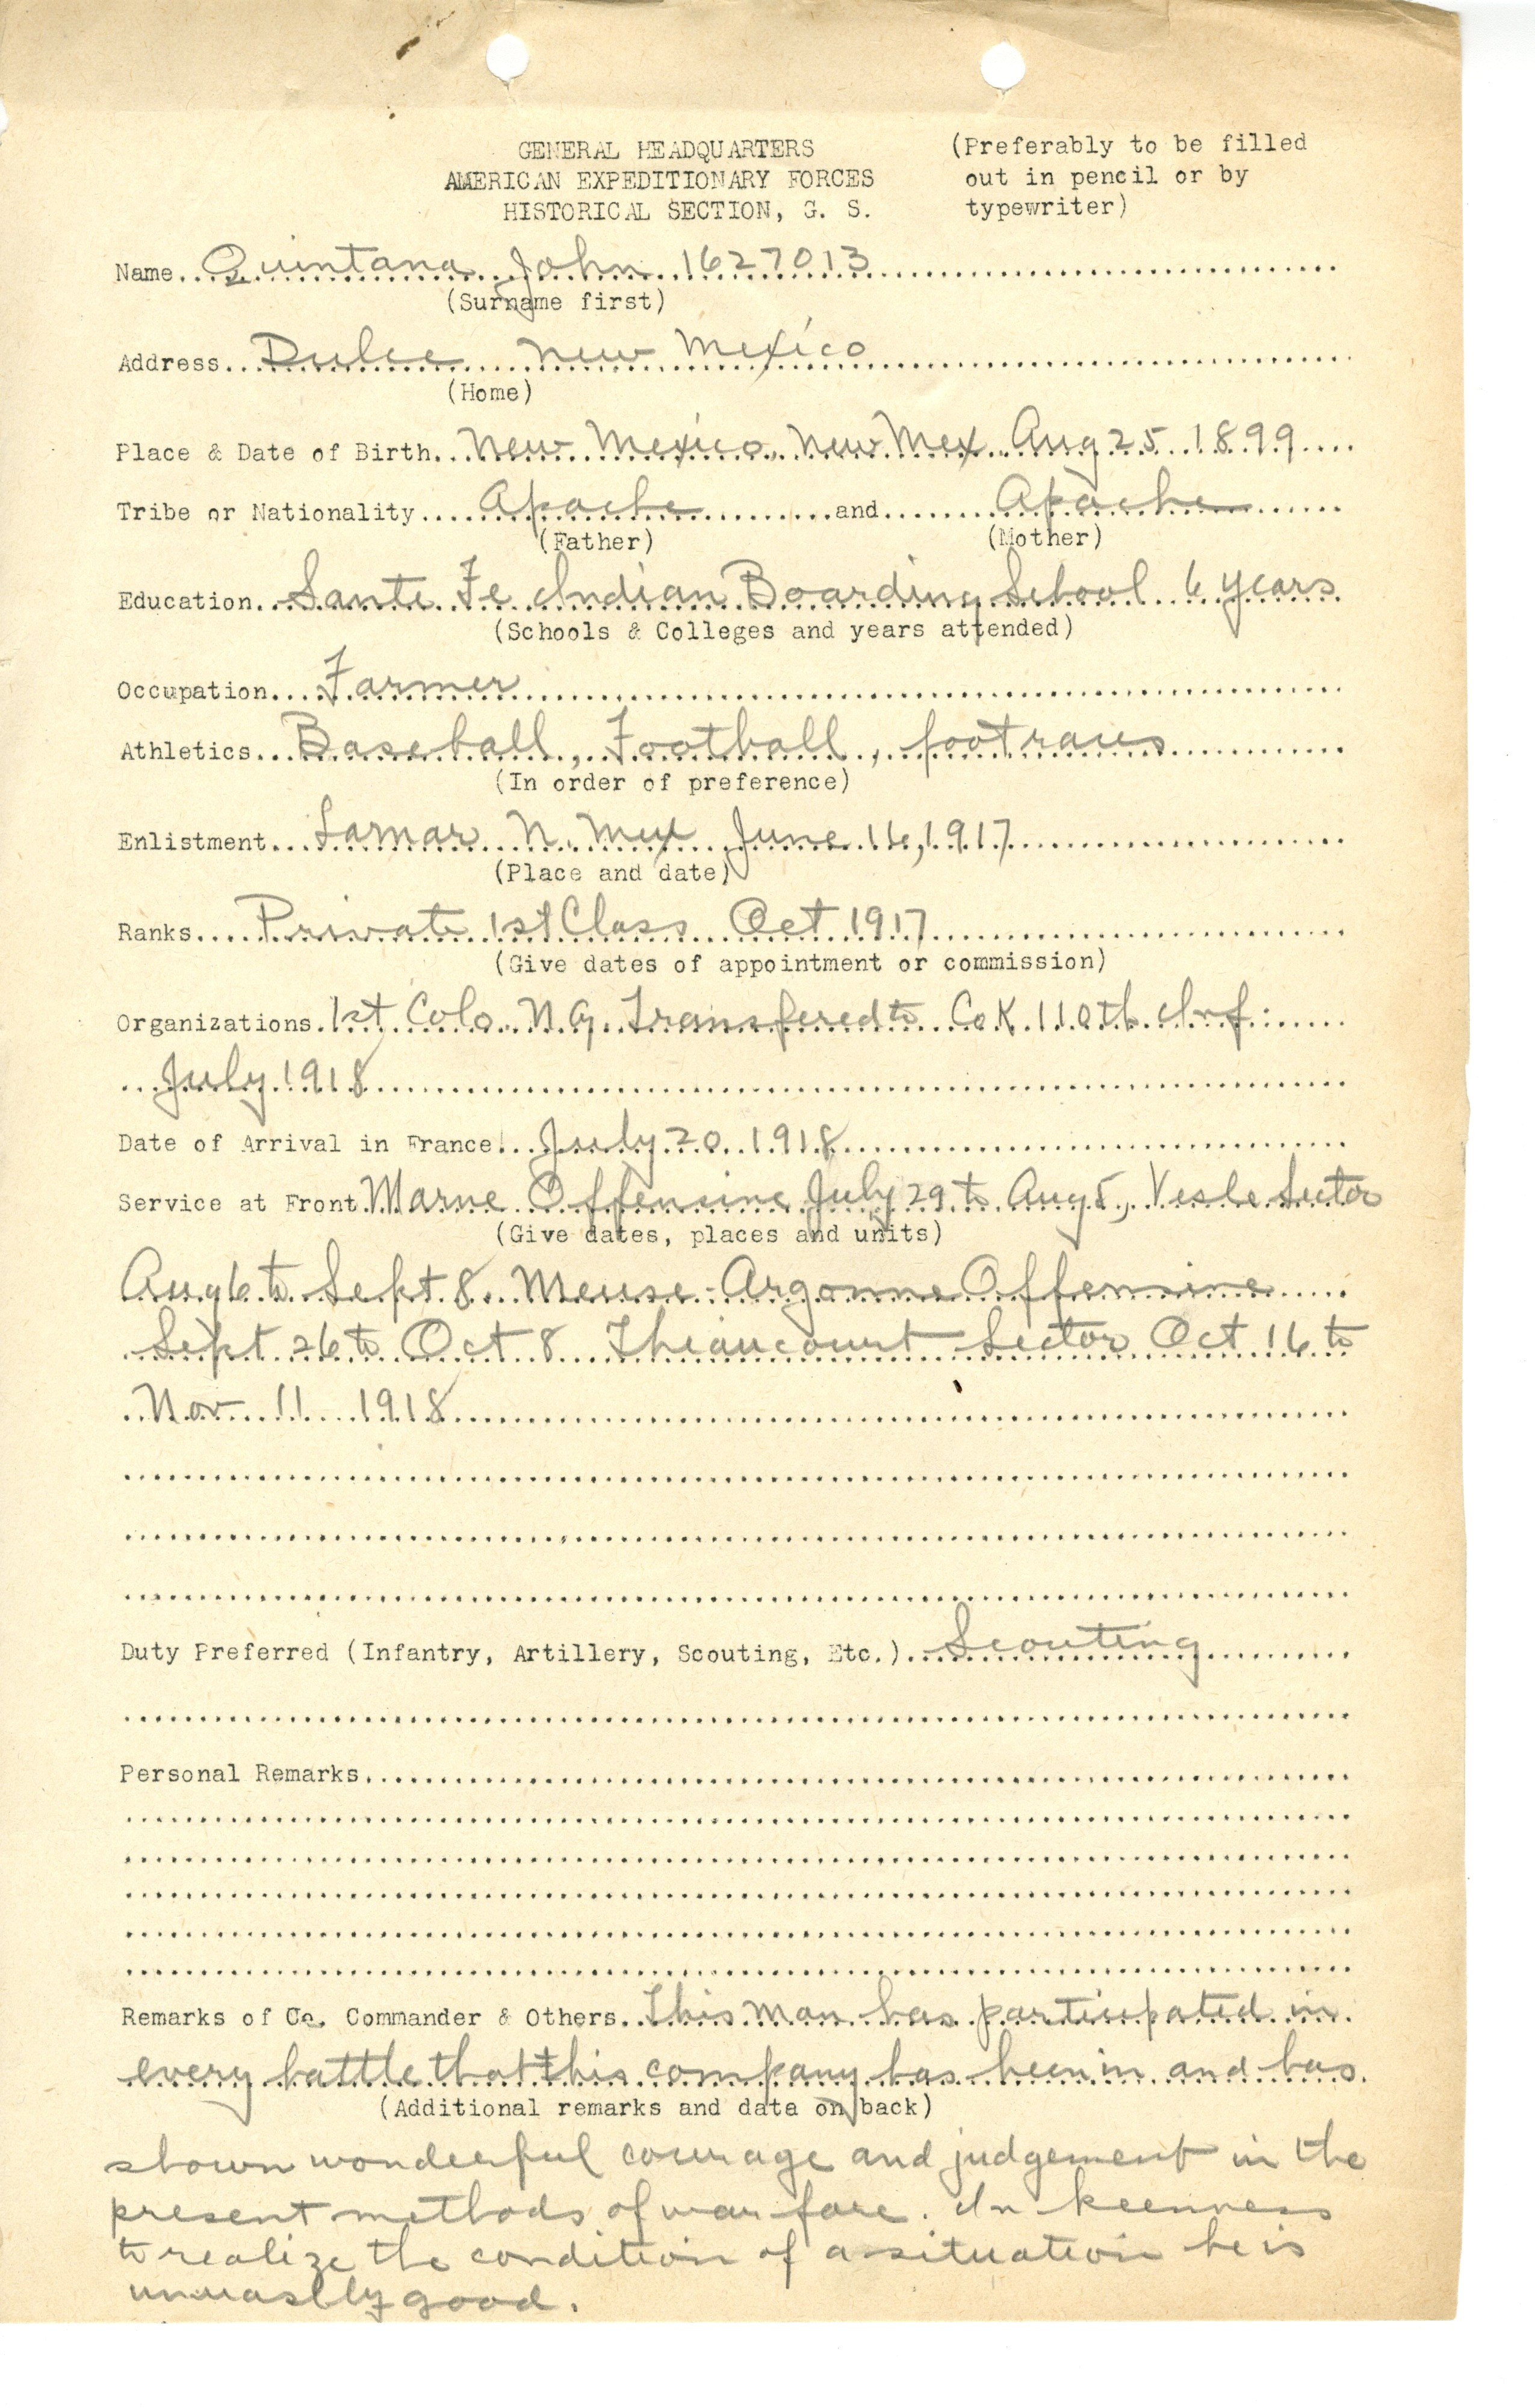 GENERAL HEADQUARTERS (Preferably to be filled
AMERICAN EXPEDITIONARY FORCES out in pencil or by
HISTORICAL SECTION, G. S. typewriter)
Name Quintana John 1627013
(Surname first)
Address Dulce New Mexico
(Home)
Place & Date of Birth New Mexico, New Mex Aug 25 1899
Tribe or Nationality Apache and Apache
(Father) (Mother)
Education Sante Fe Indian Boarding School 6 years
(Schools & Colleges and years attended)
Occupation Farmer
Athletics Baseball, Football, foot races
(In order of preference)
Enlistment Lamar N. Mex June 16, 1917
(Place and date)
Ranks Private 1st Class Oct 1917
(Give dates of appointment or commission)
Organizations 1st Colo. N G. Transfered to Co K 110th Inf:
July 1918
Date of Arrival in France July 20 1918
Service at Front Marne Offensine July 29 to Aug 5, Vesle Sector
(Give dates, places and units)
Aug 6 to Sept 8. Meuse-Argonne Offensine
Sept 26 to Oct 8 Thiaucourt Sector Oct 16 to
Nov 11 1918
Duty Preferred (Infantry, Artillery, Scouting, Etc.) Scouting
Personal Remarks
Remarks of Co. Commander & Others. This man has participated in
every battle that this company has been in and has
(Additional remarks and data on back)
shown wonderful courage and judgement in the
present methods of warfare. In keenness
to realize the condition of a situation he is
unuaslly good.